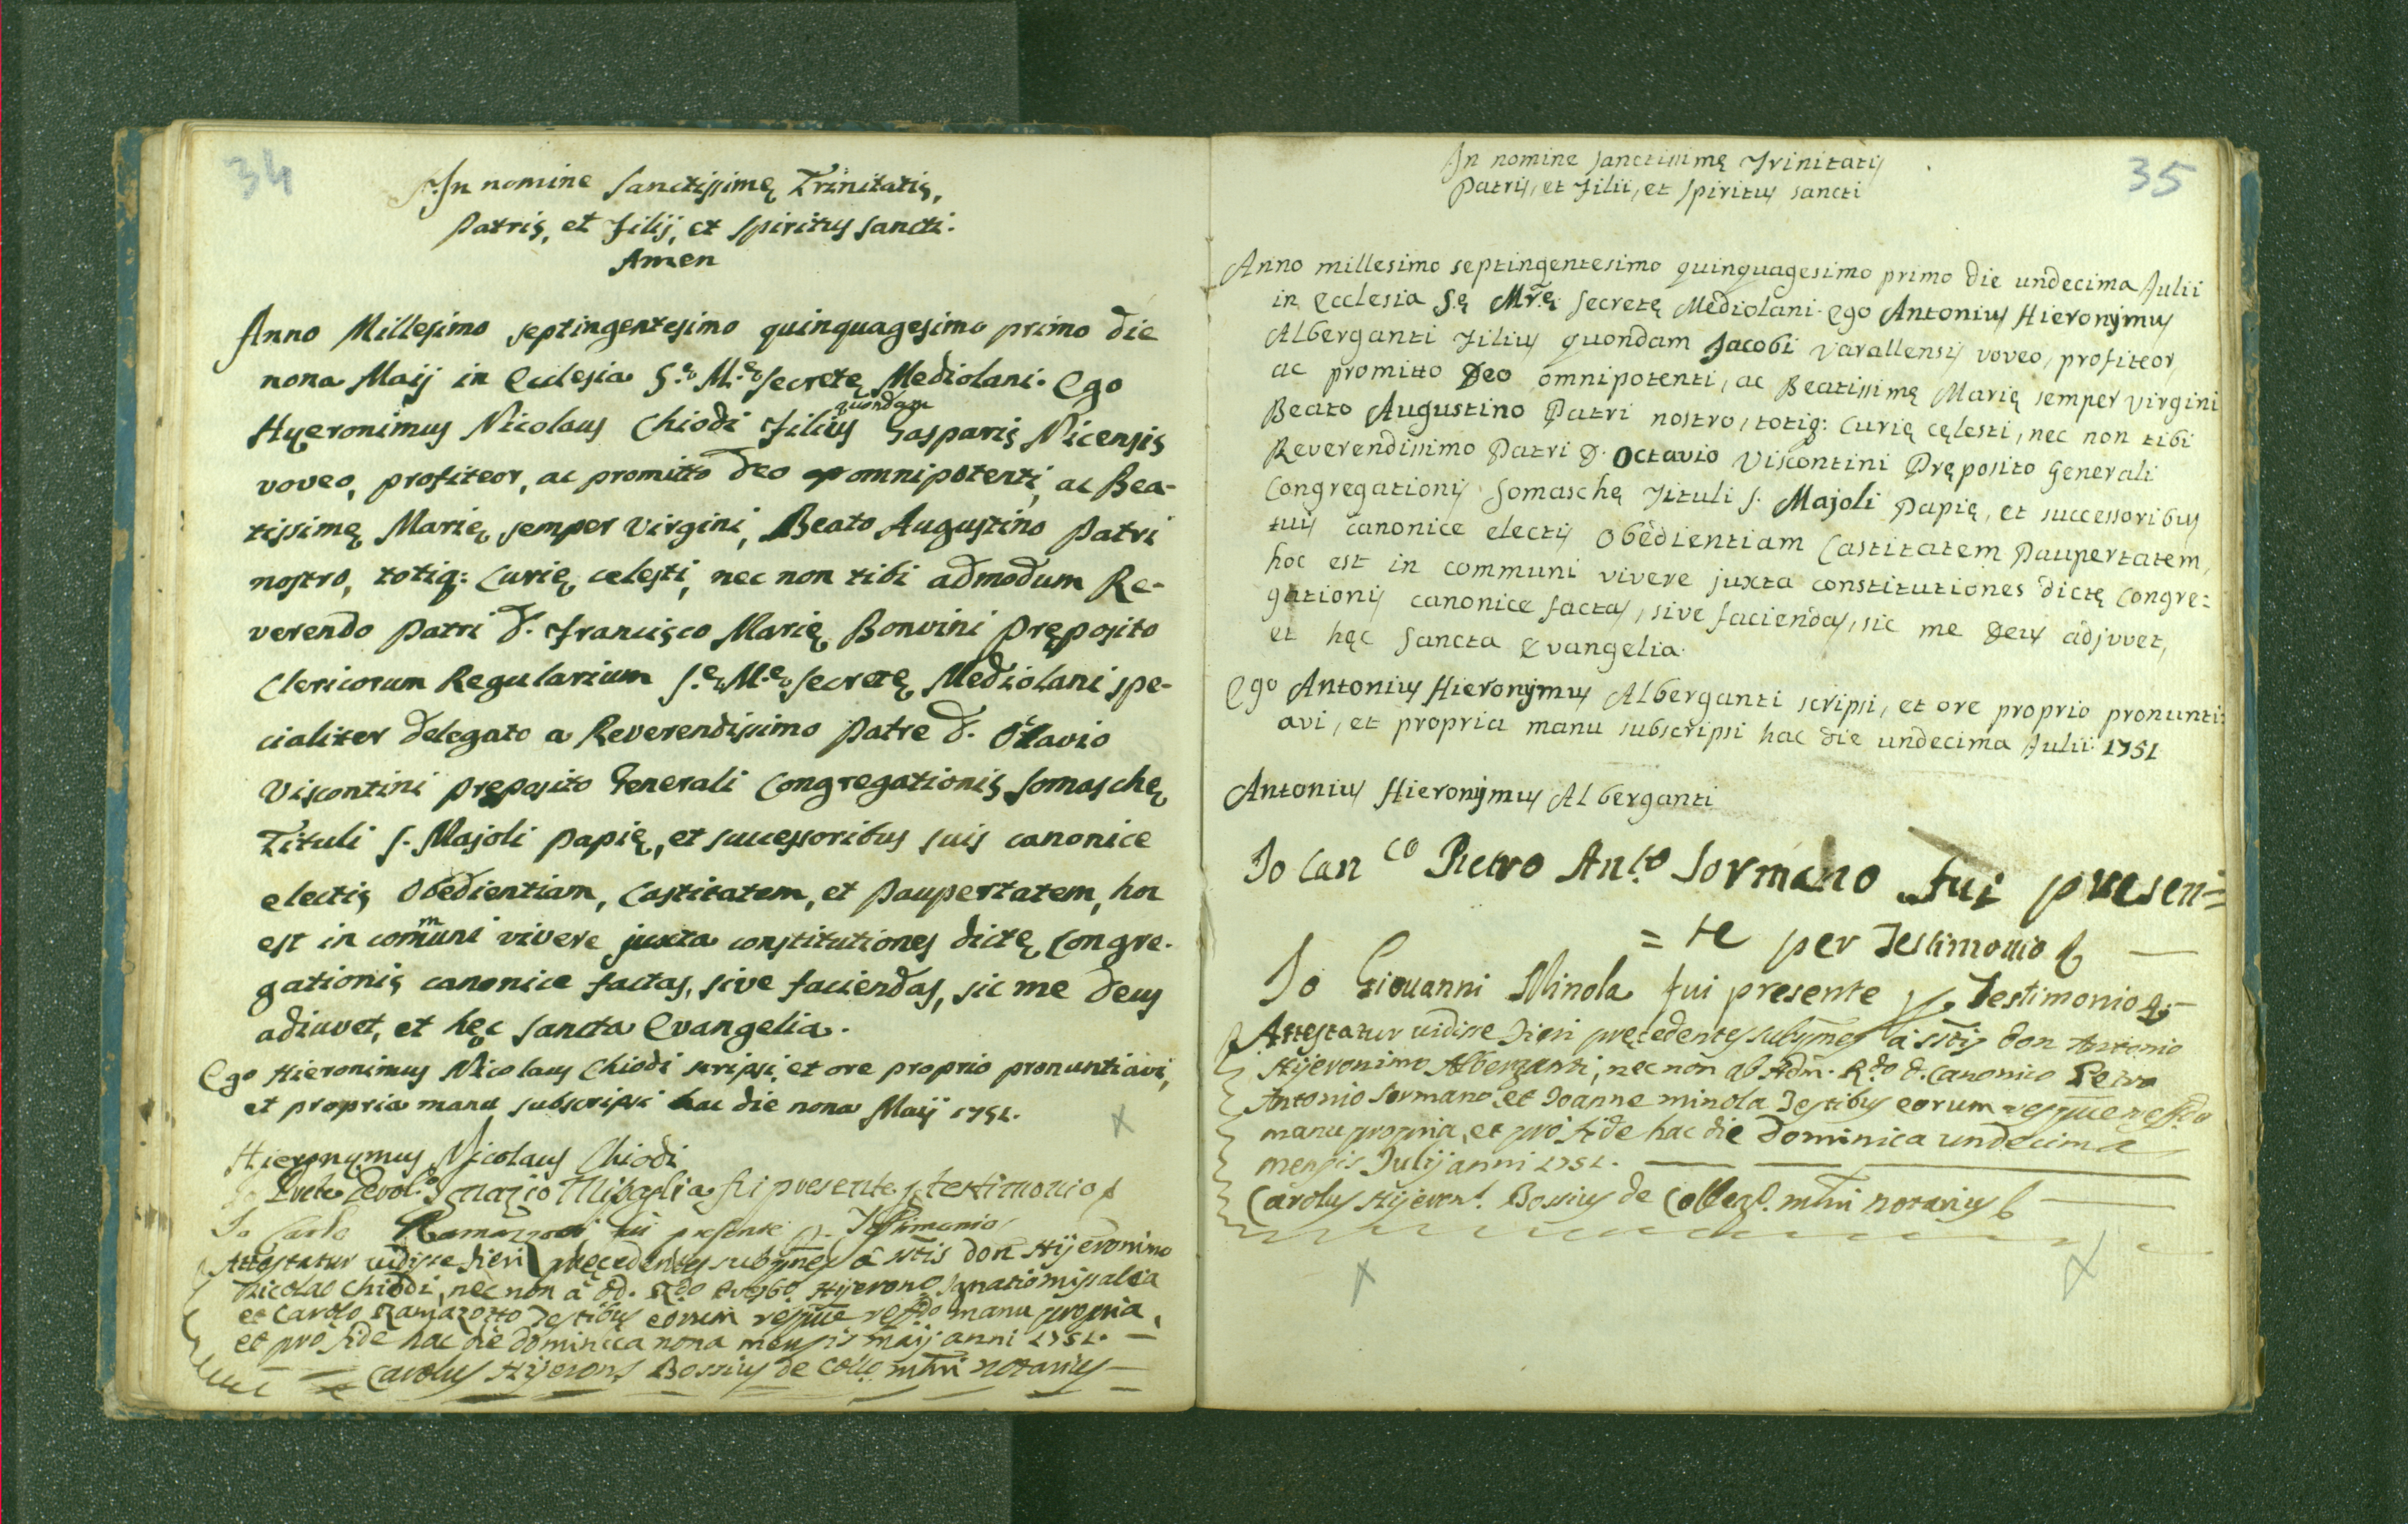 34
In nomine Sanctissimę Trinitatis,
Patris, et Filij, et Spiritus Sancti.
Amen
Anno Millesimo septingentesimo quinquagesimo primo die
nona Maij in Ecclesia S.ę M.ę Secretę Mediolani. Ego
Hyeronimus Nicolaus Chiodi Filius quondam Gasparis Nicensis
voveo, profiteor, ac promitto Deo omnipotenti, ac Bea-
tissimę Marię semper Virgini, Beato Augustino Patri
nostro, totiq: Curię celesti, nec non tibi admodum Re-
verendo Patri D. Francisco Marię Bonvini Pręposito
Clericorum Regularium S.ę M.ę Secretę Mediolani spe-
cialiter delegato a Reverendissimo Patre D. Octavio
Viscontini pręposito Generali Congregationis Somaschę
Tituli S. Majoli Papię, et successoribus suis canonice
electis Obedientiam, Castitatem, et Paupertatem, hoc
est in communi vivere juxta constitutiones dictę Congre-
gationis canonice factas, sive faciendas, sic me Deus
adiuvet, et hęc Sancta Evangelia.
Ego Hieronimus Nicolaus Chiodi scripsi, et ore proprio pronuntiavi,
et propria manu subscripsi hac die nona Maij 1751.
Hieronymus Nicolaus Chiodi
Io Ignazio Misaglia fui presente p. testimonio
Io Carlo fui presente p. Testimonio
Attestatur vidisse fieri pręcedentes subnes à sctis don Hijeronimo
Nicolao Chiodi, nec non à Hijeron.o Ignatio missalia
et Carolo Ramazotto Testibus eorum respue manu propria,
et pro fide hac die dominica nona mensis maij anni 1751. —
Carolus Hijerons Bossius de Collo mlni notarius —
35
In nomine Sanctissimę Trinitatis
Patris, et Filii, et Spiritus Sancti
Anno millesimo septingentesimo quinquagesimo primo die undecima Julii
in Ecclesia S.ę Mr̃.ę Secretę Mediolani. Ego Antonius Hieronymus
Alberganti Filius quondam Jacobi Varallensis voveo, profiteor,
ac promitto Deo omnipotenti, ac Beatissimę Marię semper Virgini
Beato Augustino Patri nostro, totiq: Curię cęlesti, nec non tibi
Reverendissimo Patri D. Octavio Viscontini Pręposito Generali
Congregationis Somaschę Tituli S. Majoli Papię, et successoribus
tuis canonice electis Obedientiam Castitatem Paupertatem,
hoc est in communi vivere juxta constitutiones dictę Congre=
gationis canonice factas, sive faciendas, sic me Deus adjuvet,
et hęc Sancta Evangelia.
Ego Antonius Hieronymus Alberganti scripsi, et ore proprio pronunti=
avi, et propria manu subscripsi hac die undecima Julii 1751
Antonius Hieronymus Alberganti
Io Can.co Pietro Ant.o Sormano fui presen=
= te per Testimonio
Io Giovanni Minola fui presente p. Testimonio
Attestatur vidisse fieri pręcedentes subnes à sctis don Antonio
Hijeronimo Alberganti, nec non ab Adm. R.do d. Canonico Petro
Antonio Sormano, et Joanne minola Testibus eorum respue
manu propria, et pro fide hac die Dominica undecima
mensis Julij anni 1751.
Carolus Hijeron.s Bossius de Colleg.o mlni notarius